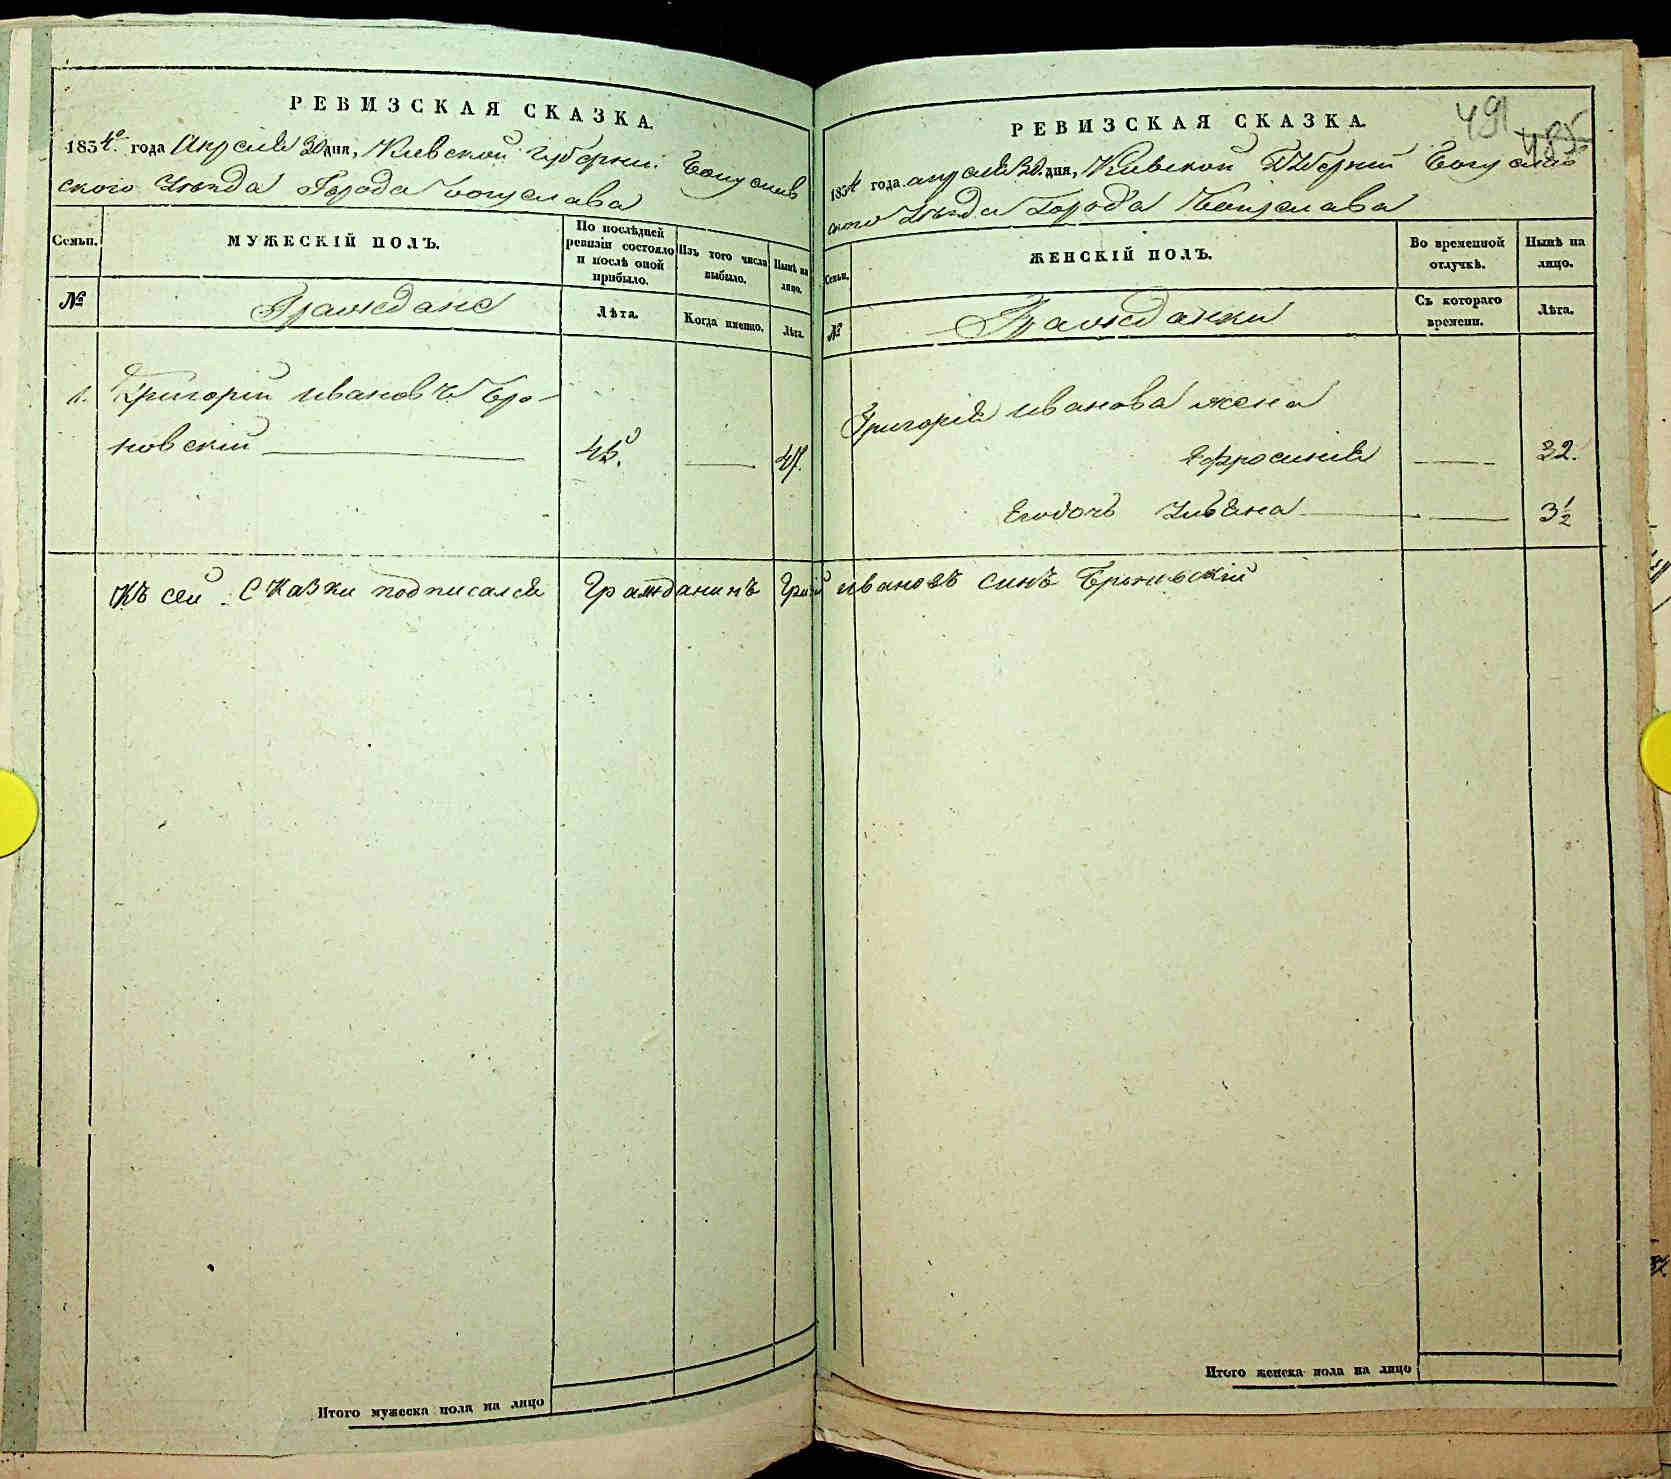 РЕВИЗСКАЯ СКАЗКА.
1834го года Апреля 30 дня, Киевской Губернии Богуслав
ского Уезда Города Богуслава
Семьи. МУЖЕСКІЙ ПОЛЪ. По послѣдней ревизіи состояло и послѣ оной прибыло. Изъ того числа выбыло. Нынѣ на лицо.
№ Граждане Лѣта. Когда именно. Лѣта.
1. Григорій Ивановъ Бро-
новскій
Итого мужеска пола на лицо
491
485
РЕВИЗСКАЯ СКАЗКА.
1834 года апреля 30 дня, Киевской Губерніи Богуслав
Уезда Города Богуслава
Семьи. ЖЕНСКІЙ ПОЛЪ. Во временной отлучкѣ. Нынѣ на лицо.
№ Гражданки Съ котораго времени. Лѣта.
Григорія Иванова жена
Ефросинія 32.
Уляна 3½
Къ сей Сказки подписался Гражданинъ Григ Ивановъ синъ Броновскій
Итого женска пола на лицо